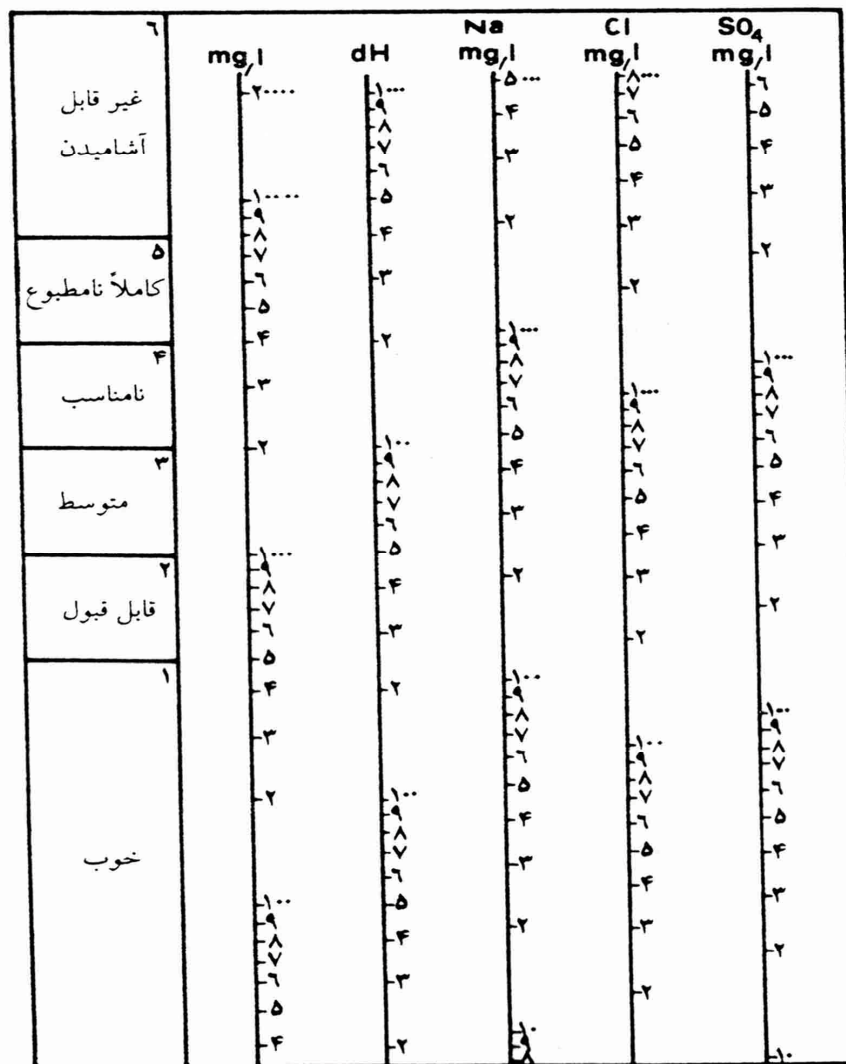 ٦
غیر قابل
آشامیدن
۵
کاملاً نامطبوع
۴
نامناسب
۳
متوسط
۲
قابل قبول
۱
خوب
mg/l
۲۰۰۰۰
۱۰۰۰۰
۹
۸
۷
٦
۵
۴
۳
۲
۱۰۰۰
۹
۸
۷
٦
۵
۴
۳
۲
۱۰۰
۹
۸
۷
٦
۵
۴
dH
۱۰۰۰
۹
۸
۷
٦
۵
۴
۳
۲
۱۰۰
۹
۸
۷
٦
۵
۴
۳
۲
۱۰۰
۹
۸
۷
٦
۵
۴
۳
۲
Na
mg/l
۵۰۰۰
۴
۳
۲
۱۰۰۰
۹
۸
۷
٦
۵
۴
۳
۲
۱۰۰
۹
۸
۷
٦
۵
۴
۳
۲
۱۰
۹
۸
Cl
mg/l
۸۰۰۰
۷
٦
۵
۴
۳
۲
۱۰۰۰
۹
۸
۷
٦
۵
۴
۳
۲
۱۰۰
۹
۸
۷
٦
۵
۴
۳
۲
SO₄
mg/l
٦
۵
۴
۳
۲
۱۰۰۰
۹
۸
۷
٦
۵
۴
۳
۲
۱۰۰
۹
۸
۷
٦
۵
۴
۳
۲
۱۰